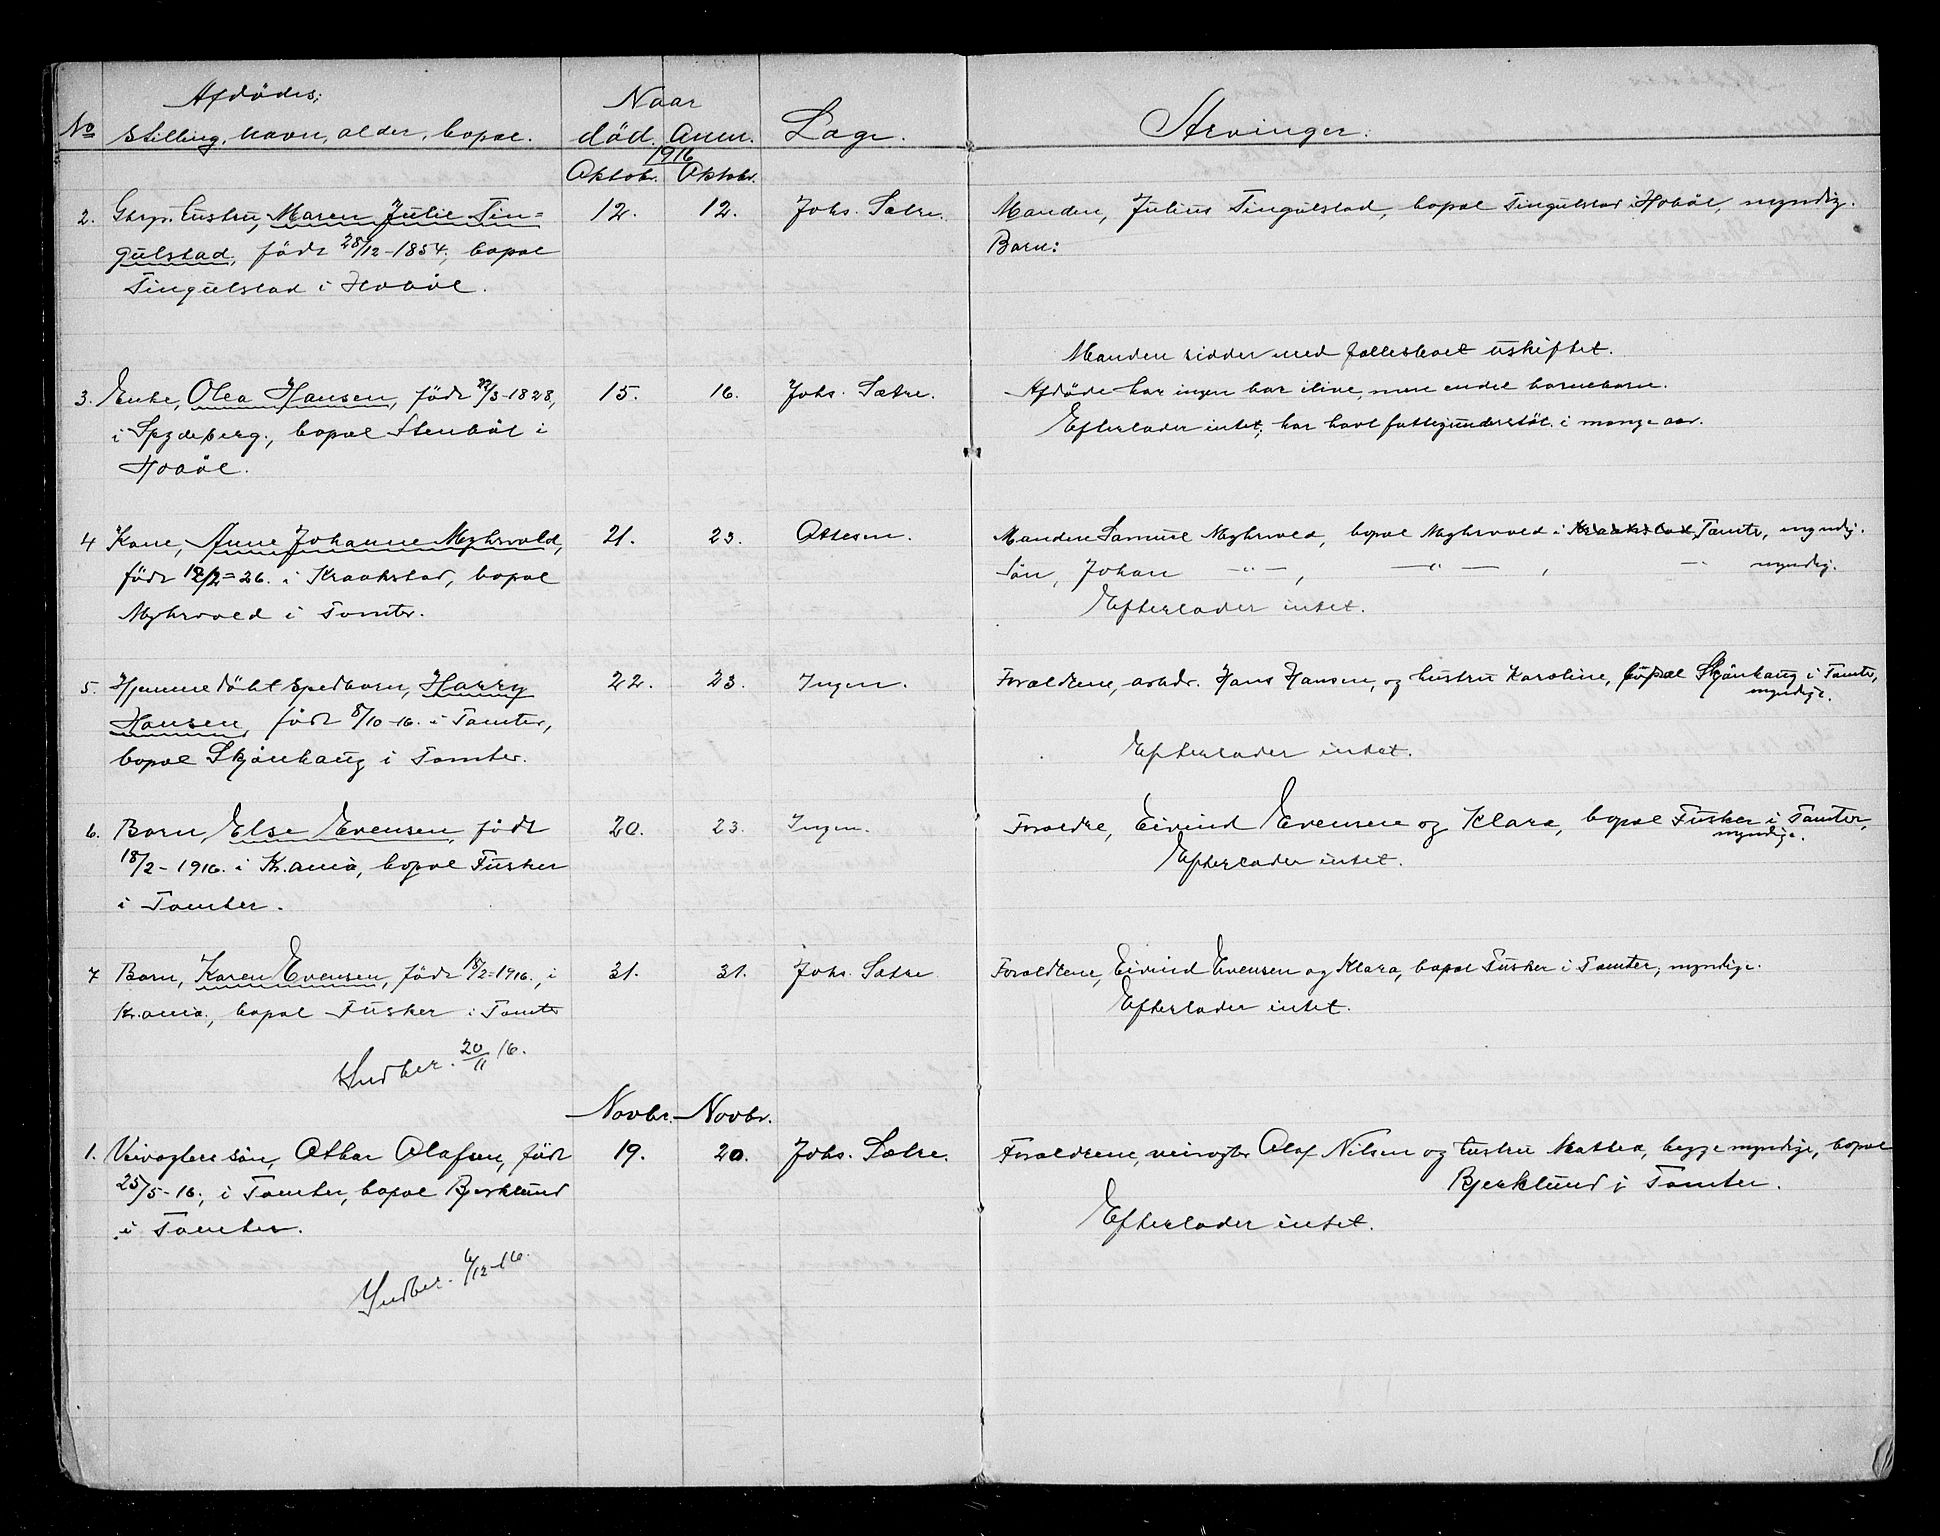 Afdødes;
No
Stilling, navn, alder, bopæl.
Naar
død. Anm.
Læge.
Arvinger.
1916
Oktobr. Oktobr.
2. Gbrgr. hustru, Maren Julie Tin=
gulstad, født 28/12-1854, bopæl
Tingulstad i Hobøl.
12. 12. Johs. Sætre.
Manden, Julius Tingulstad, bopæl Tingulstad i Hobøl, myndig.
Børn:
Manden sidder med fællesboet uskiftet.
3. Enke, Olea Hansen, født 22/3-1828,
i Spydeberg, bopæl Stenbøl i
Hobøl.
15. 16. Johs. Sætre.
Afdøde har ingen bar ilive, men endel barnebarn.
Efterlader intet; har havt fattigunderstøt. i mange aar.
4 Kone, Anne Johanne Myhrvold,
født 12/2=26. i Kraakstad, bopæl
Myhrvold i Tomter.
21. 23. Ottesen.
Manden Samuel Myhrvold, bopæl Myhrvold i Kraakstad, Tomter, myndig.
Søn, Johan —"—, —"—, — myndig.
Efterlader intet.
5. Hjemmedøbt spedbarn, Harry
Hansen, født 8/10-16. i Tomter,
bopæl Skjønhaug i Tomter.
22. 23. Ingen.
Forældrene, arbdr. Hans Hansen, og hustru Karoline, bopæl Skjønhaug i Tomter,
myndige.
Efterlader intet.
6. Barn, Else Evensen, født
18/2-1916. i Kr.ania, bopæl Fusker
i Tomter.
20. 23. Ingen.
Forældre, Eivind Evensen og Klara, bopæl Fusker i Tomter,
myndige.
Efterlader intet.
7 Barn, Karen Evensen, født 18/2=1916., i
Kr.ania, bopæl Fusker i Tomter
31. 31. Johs. Sætre
Forældrene, Eivind Evensen og Klara, bopæl Fusker i Tomter, myndige.
Efterlader intet.
Indber. 20/11 16.
Novbr. Novbr.
1. Veivogters søn, Othar Olafsen, født
25/5-16., i Tomter, bopæl Bjerklund
i Tomter.
19. 20. Johs. Sætre.
Forældrene, veivogter Olaf Nilsen og hustru Mathea, begge myndige, bopæl
Bjerklund i Tomter.
Efterlader intet.
Indber. 6/12-16.